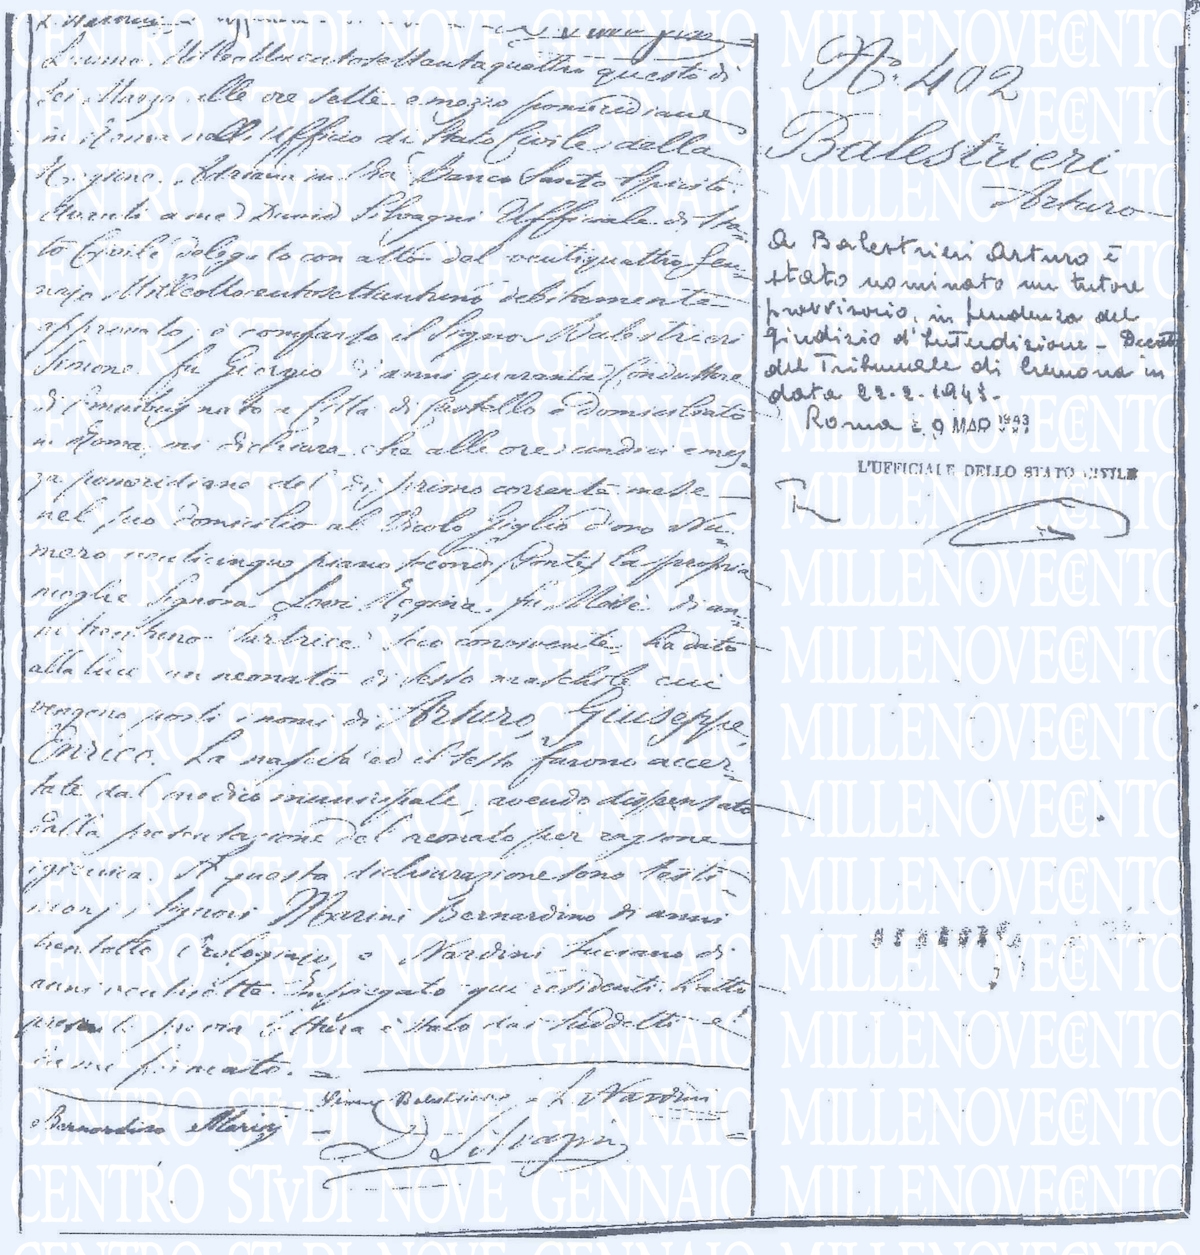 L'anno Milleottocentosettantaquattro questo dì
sei Marzo alle ore sette e mezzo pomeridiane
in Roma nell'Ufficio di Stato Civile della
Regione Adriana in Via Banco Santo Spirito
Avanti a me David Silvagni Uffiziale di Sta-
to Civile delegato con atto del ventiquattro Gen-
najo Milleottocentosettantuno debitamente
approvato, è comparso il Signor Balestrieri
Simone fu Giorgio di anni quaranta Conduttore
di Omnibus nato a Città di Castello e domiciliato
in Roma, mi dichiara che alle ore undici e mez-
za pomeridiane del dì primo corrente mese
nel suo domicilio al Vicolo Giglio d'oro Nu-
mero venticinque piano secondo (Ponte) la propria
moglie Signora Regina fu Mosè di an-
ni trentuno Sartrice seco convivente ha dato
alla luce un neonato di sesso maschile cui
vengono posti i nomi di Arturo, Giuseppe,
Enrico. La nascita ed il sesso furono accer-
tate dal medico municipale, avendo dispensato
dalla presentazione del neonato per ragione
igienica. A questa dichiarazione sono testi-
monj i Signori Marini Bernardino di anni
trentotto Orologiajo, e Nardini Luciano di
anni ventisette Impiegato qui residenti. L'atto
presente previa lettura è stato dai suddetti e
da me firmato.
Simone Balestrieri L Nardini
Bernardino Marini
D Silvagni
N.º 402
Balestrieri
Arturo
A Balestrieri Arturo è
stato nominato un tutore
provvisorio, in pendenza del
giudizio d'Interdizione - Decreto
del Tribunale di Cremona in
data 22.2.1943.
Roma 9 MAR 1943
L'UFFICIALE DELLO STATO CIVILE
CENTRO STVDI NOVE GENNAIO MILLENOVECENTO